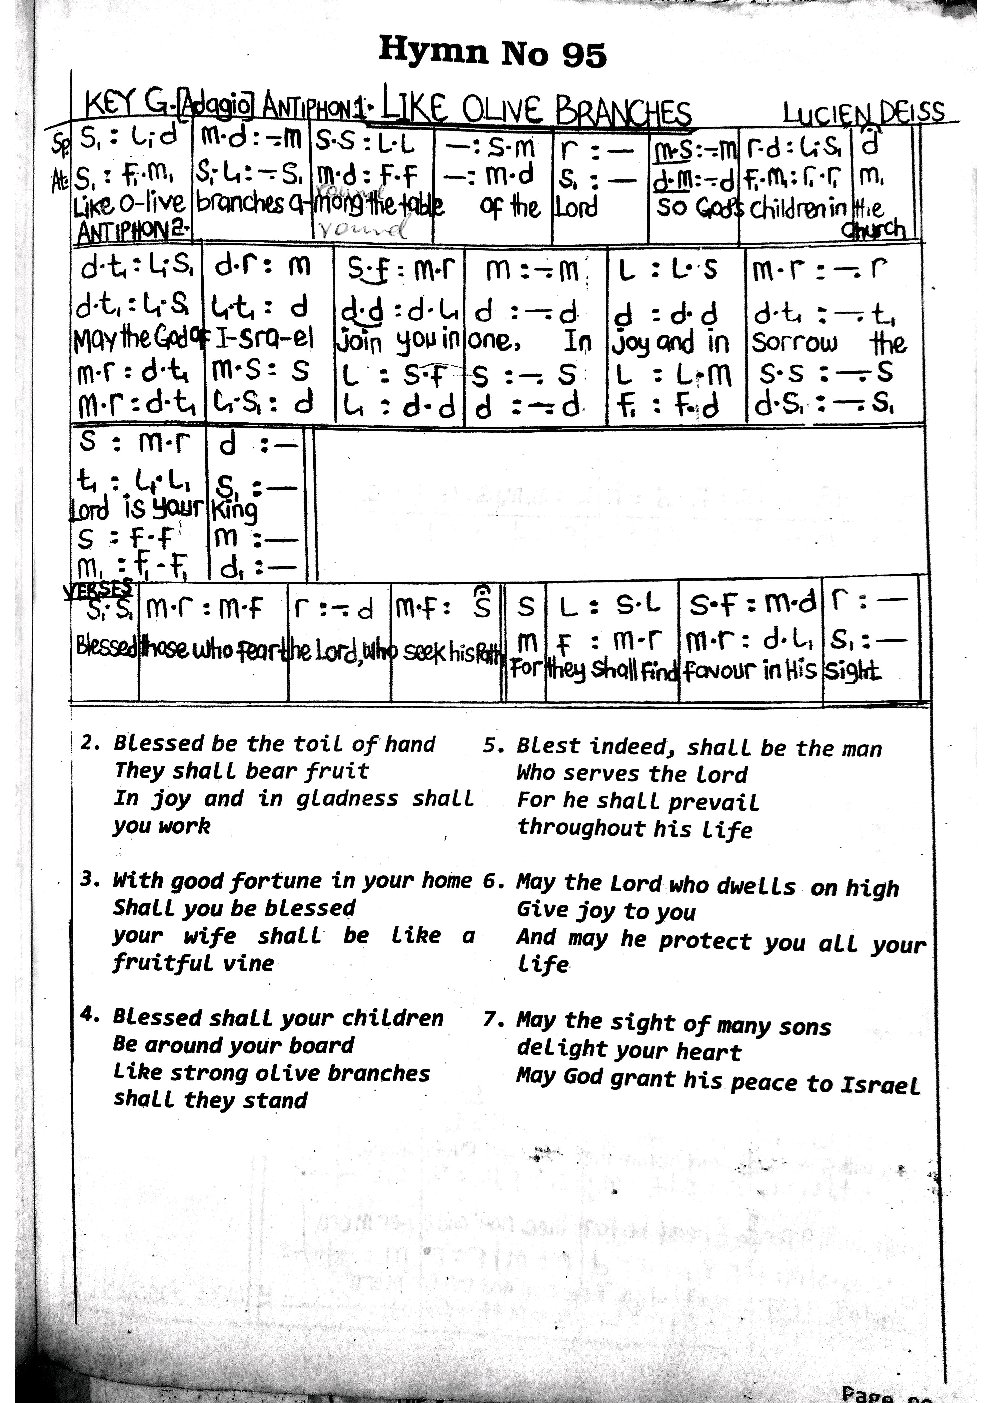 Hymn No 95
KEY G. [Adagio] ANTIPHON 1. LIKE OLIVE BRANCHES LUCIEN DEISS
Sp S₁ : L₁.d | m.d : -.m | S.S : L.L | — : S.m | r : — | m.S : -.m | r.d : L₁.S₁ | d
Alt S₁ : F₁.m₁ | S₁.L₁ : -.S₁ | m.d : F.F | — : m.d | S₁ : — | d.m : -.d | F₁.m₁ : r₁.r₁ | m₁
round
Like O-live | branches a-|mong the table | of the | Lord | So God's | children in | the
round church
ANTIPHON 2.
d.t₁ : L₁.S₁ | d.r : m | S.f : m.r | m : -.m | L : L.S | m.r : -.r
d.t₁ : L₁.S₁ | L₁.t₁ : d | d.d : d.L₁ | d : -.d | d : d.d | d.t₁ : -.t₁
May the God of | I-sra-el | Join you in | one, In | joy and in | Sorrow the
m.r : d.t₁ | m.S : S | L : S.f | S : -.S | L : L.m | S.S : -.S
m.r : d.t₁ | L₁.S₁ : d | L₁ : d.d | d : -.d | F₁ : F₁.d | d.S₁ : -.S₁
S : m.r | d : —
t₁ : L₁.L₁ | S₁ : —
Lord is your | King
S : F.F | m : —
m₁ : F₁.F₁ | d₁ : —
VERSES
S₁.S₁ | m.r : m.f | r : -.d | m.f : S | S | L : S.L | S.f : m.d | r : —
m | f : m.r | m.r : d.L₁ | S₁ : —
Blessed | those who fear | the Lord, who | seek his Path
For | they shall find | favour in His | Sight
2. Blessed be the toil of hand
They shall bear fruit
In joy and in gladness shall
you work
3. With good fortune in your home
Shall you be blessed
your wife shall be like a
fruitful vine
4. Blessed shall your children
Be around your board
Like strong olive branches
shall they stand
5. Blest indeed, shall be the man
Who serves the Lord
For he shall prevail
throughout his life
6. May the Lord who dwells on high
Give joy to you
And may he protect you all your
life
7. May the sight of many sons
delight your heart
May God grant his peace to Israel
Page